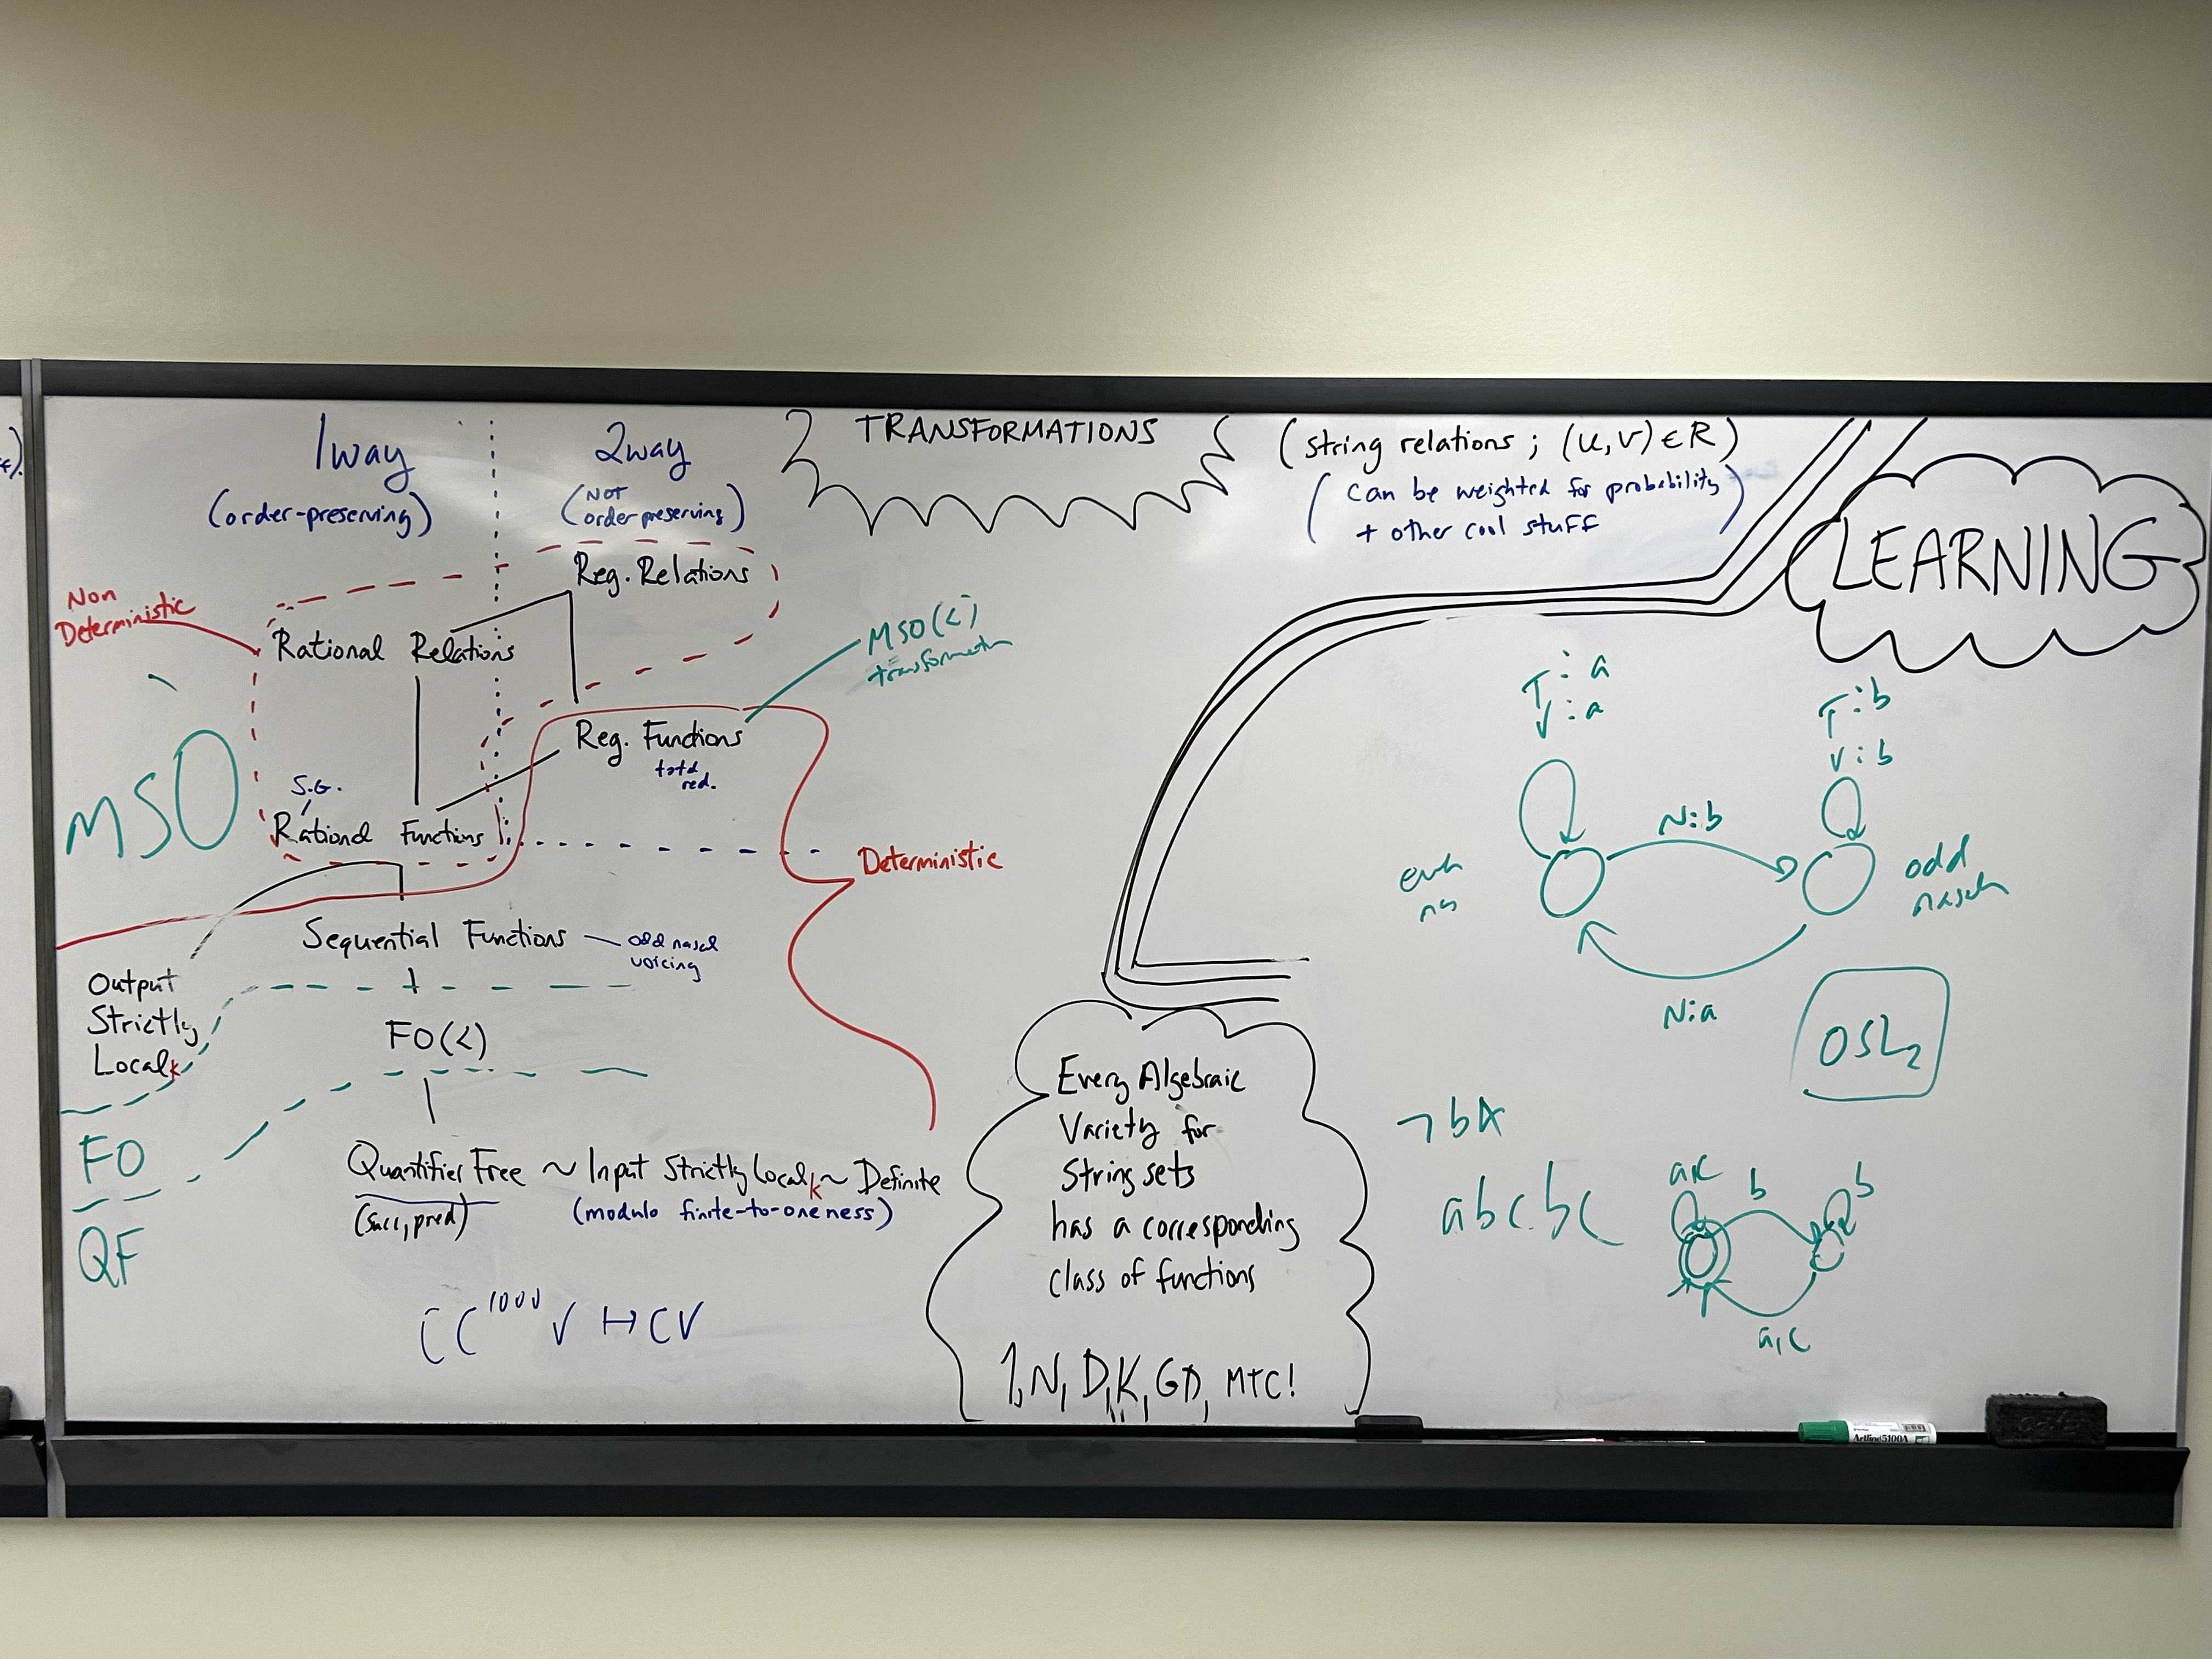 1way
(order-preserving)
2way
(NOT
order preserving)
TRANSFORMATIONS
(string relations ; (u,v) ∈ R)
(can be weighted for probability
+ other cool stuff)
LEARNING
Non
Deterministic
Reg. Relations
Rational Relations
MSO(<)
MSO
Reg. Functions
red.
S.G.
Rational Functions
Deterministic
Sequential Functions — odd nasal
voicing
Output
Strictly
Local k
FO(<)
FO
Quantifier Free ~ Input Strictly Local k ~ Definite
(succ, pred)
(modulo finite-to-oneness)
QF
V ↦ CV
Every Algebraic
Variety for
String sets
has a corresponding
class of functions
1, N, D, K, GD, MTC!
T : a
V : a
T : b
V : b
N:b
odd
N:a
OSL2
abcbc
b
b
a,c
Artline 5100A